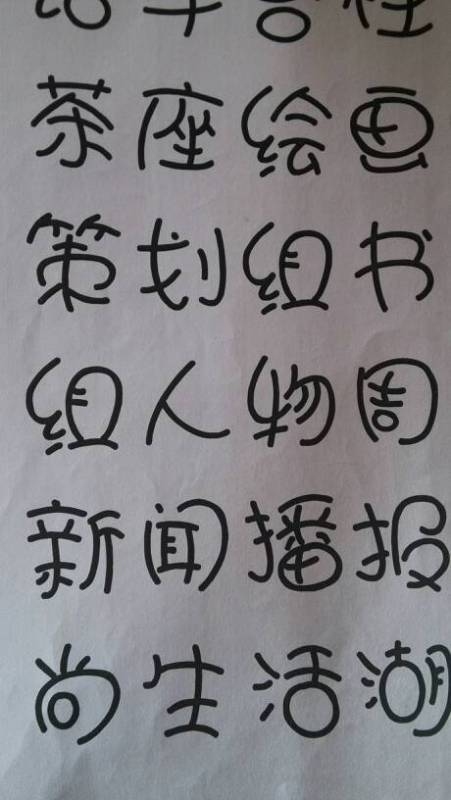 茶座绘画
策划组书
组人物周
新闻播报
尚生活湖